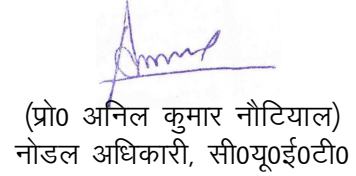 (प्रो0 अनिल कुमार नौटियाल)
नोडल अधिकारी, सी0यू0ई0टी0